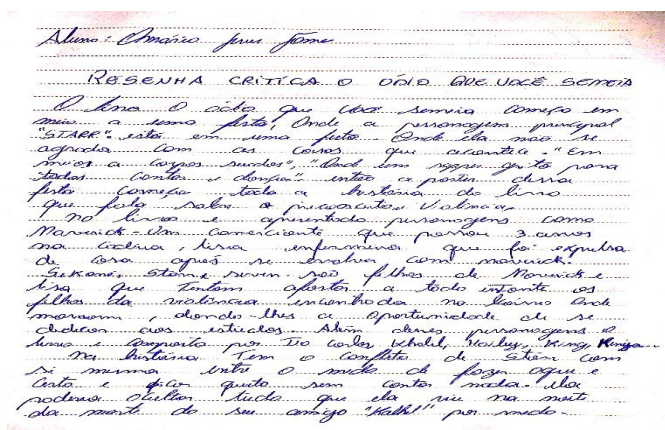 Aluno: Amárico Jesus Gomes
RESENHA CRITICA O ODIO QUE VOCÊ SEMEIA
O livro O ódio que você semeia começa em
meio a uma festa, Onde a personagem principal
"STARR" esta em uma festa. Onde ela não se
agrada com as coisas que acontece "Em
meios a corpos suados", "Onde um rapper grita para
todos" então a partir dessa
festa começa toda a história do livro
que fala sobre o preconceito e Violência.
no livro e apresentado personagens como
Maverick - Um comerciante que passou 3 anos
na cadeia, lisa enfermeira que foi expulsa
de casa após se envolver com maverick.
Sekani, Starr e seven são filhos de Maverick e
lisa que Tentam afastar a todo instante os
filhos da violência encontrada no bairro onde
moravam, dando-lhes a oportunidade de se
dedicar aos estudos. Além desses personagens o
livro e composto por Tio Carlos, Khalil, Hailey, King, Kenya.
na história Tem o conflito de Starr com
si mesma entre o medo de fazer o que e
certo e ficar quieta sem contar nada. ela
poderia ocultar tudo que ela viu na noite
da morte do seu amigo "Kalhil" por medo.